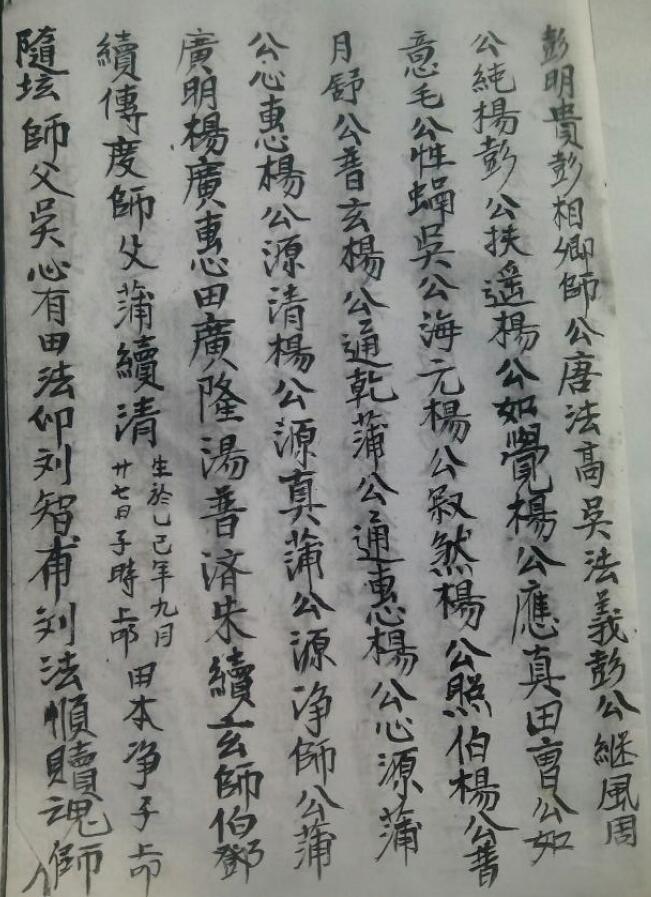 彭明貴彭相卿師公唐法高吳法義彭公継風周
公純楊彭公扶遥楊公如覺楊公應真田曹公如
意毛公性蝸吳公海元楊公寂然楊公照伯楊公普
月舒公普玄楊公通乾蒲公通惠楊公心源蒲
公心惠楊公源清楊公源真蒲公源净師公蒲
廣明楊廣惠田廣隆湯普済朱續玄師伯鄧
續傳度師父蒲續清生於乙巳年九月廿七日子時上命田本净子上命
隨坛師父吳心有田法仰刘智甫刘法順贖魂師